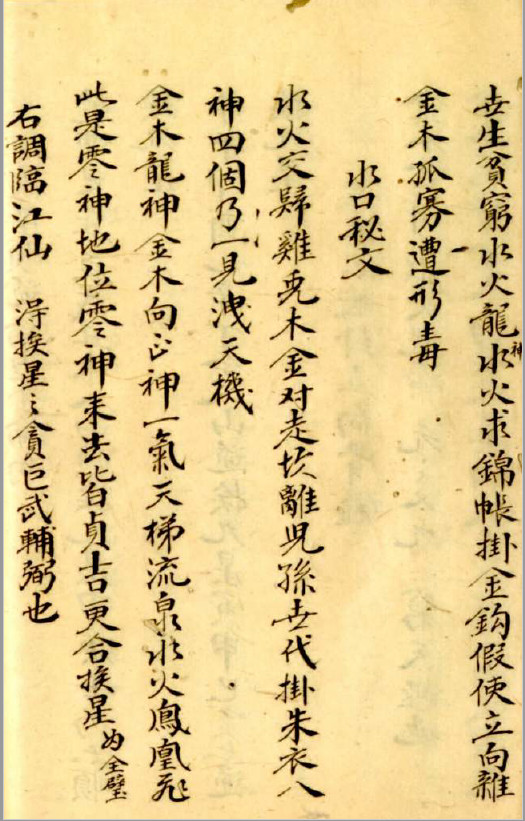 世生貧窮水火龍神水火求錦帳掛金鈎假使立向雜
金木孤寡遭形毒
水口秘文
水火交歸雞兎木金对走坎離児孫世代掛朱衣八
神四個乃一見洩天機
金木龍神金木向正神一氣天梯流泉水火鳳凰飛
此是零神地位零神来去皆貞吉更合挨星为全璧
右調臨江仙 淂挨星之貪巨武輔弼也